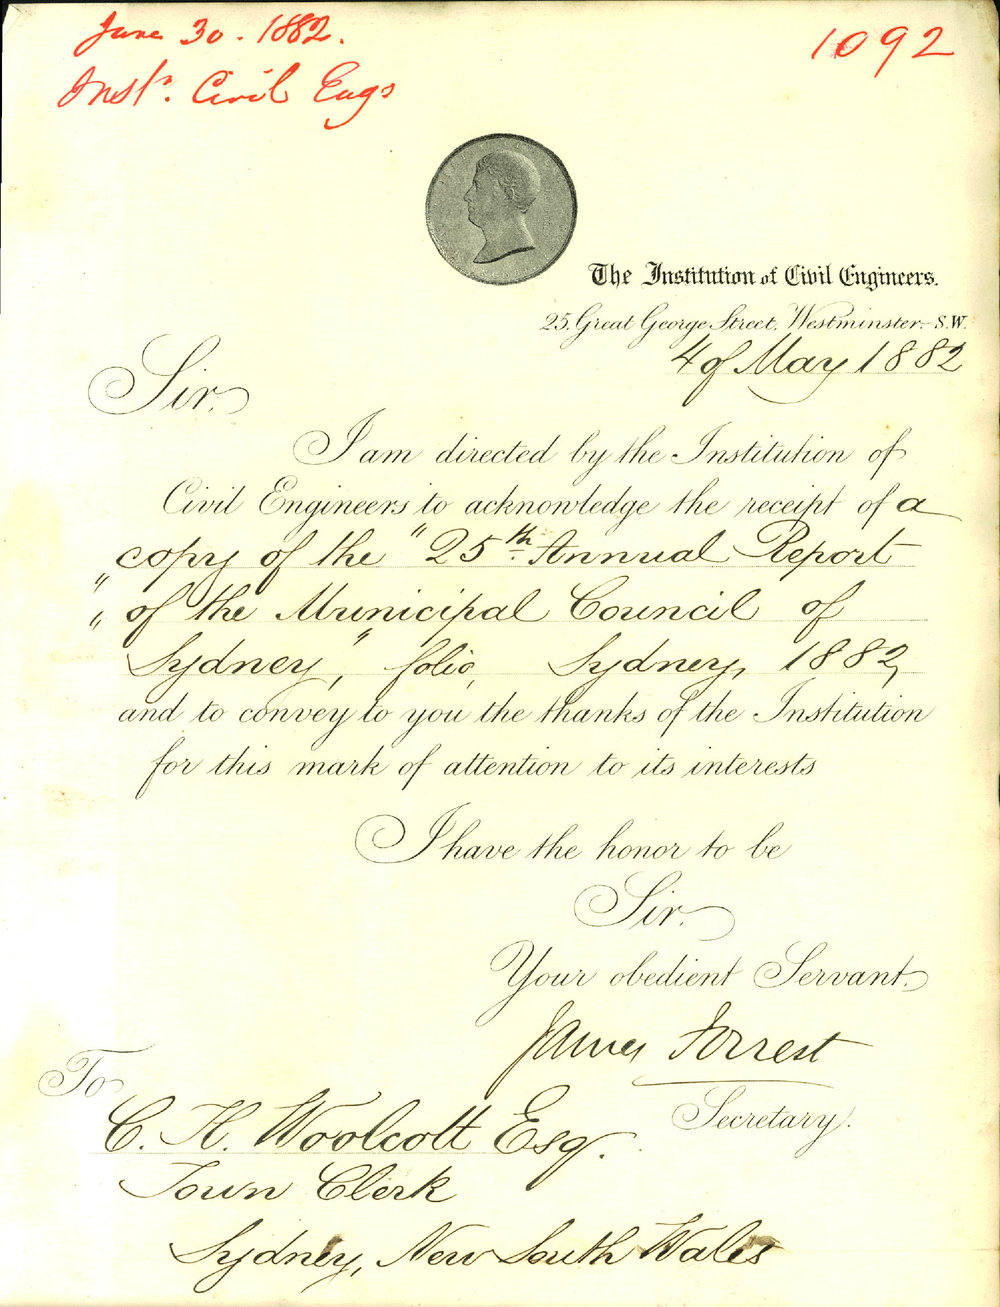 June 30. 1882.
Instn. Civil Engs
1092
The Institution of Civil Engineers.
25, Great George Street, Westminster, S.W.
4 of May 1882
Sir.
I am directed by the Institution of
Civil Engineers to acknowledge the receipt of a
copy of the "25th Annual Report
" of the Municipal Council of
" Sydney," folio, Sydney, 1882,
and to convey to you the thanks of the Institution
for this mark of attention to its interests
I have the honor to be
Sir.
Your obedient Servant.
James Forrest
Secretary.
To
C. H. Woolcott Esq.
Town Clerk
Sydney, New South Wales